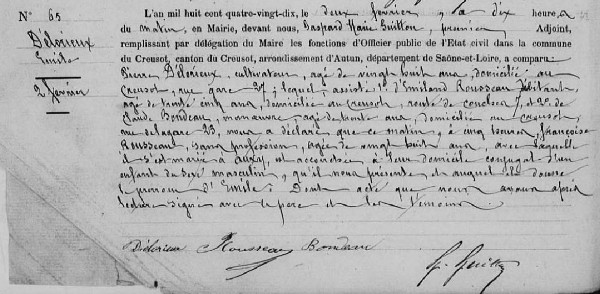 N° 65
Délorieux
Emile
2 février
L'an mil huit cent quatre-vingt-dix, le deux février, à dix heures
du matin, en Mairie, devant nous, Gaspard Marie Guillon, premier Adjoint,
remplissant par délégation du Maire les fonctions d'Officier public de l'Etat civil dans la commune
du Creusot, canton du Creusot, arrondissement d'Autun, département de Saône-et-Loire, a comparu
Pierre Délorieux, cultivateur, agé de vingt huit ans, domicilié au
Creusot, rue gare 27; lequel, assisté 1° d'Emiland Rousseau débitant,
agé de trente cinq ans, domicilié au Creusot, route de 7, et 2° de
Claude Bondeau, manœuvre agé de trente ans, domicilié au Creusot,
rue de la gare 23, nous a déclaré que ce matin, à cinq heures, françoise
Rousseau, sans profession, agée de vingt huit ans, avec laquelle
il s'est marié à auxy, est accouchée à leur domicile conjugal d'un
enfant du sexe masculin, qu'il nous présente et auquel il donne
le prénom d'Emile. Dont acte que nous avons après
lecture signé avec le père et les témoins.
Délorieux Rousseau Bondeau
G. Guillon